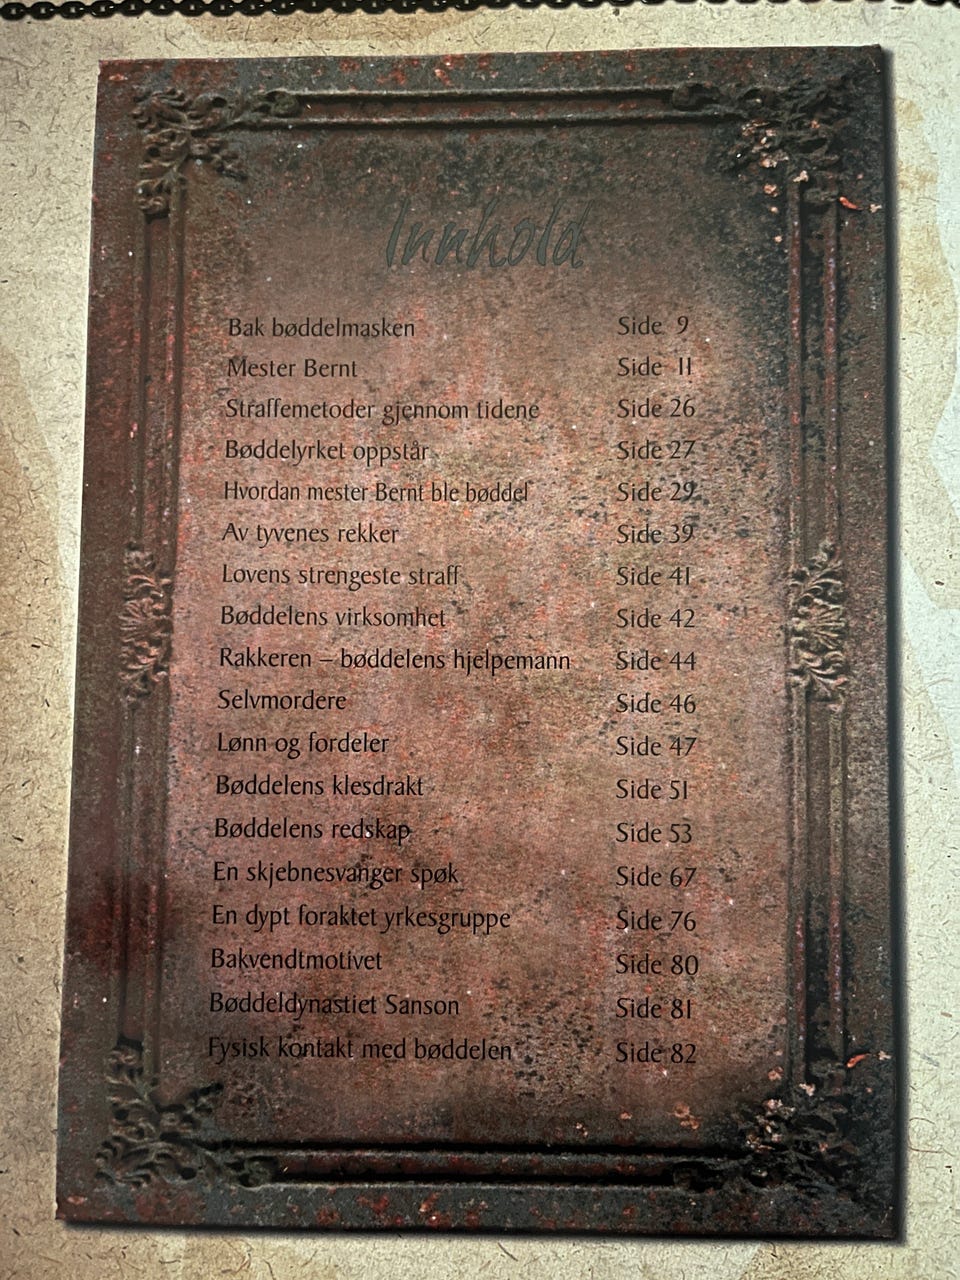 Innhold
Bak bøddelmasken Side 9
Mester Bernt Side 11
Straffemetoder gjennom tidene Side 26
Bøddelyrket oppstår Side 27
Hvordan mester Bernt ble bøddel Side 29
Av tyvenes rekker Side 39
Lovens strengeste straff Side 41
Bøddelens virksomhet Side 42
Rakkeren – bøddelens hjelpemann Side 44
Selvmordere Side 46
Lønn og fordeler Side 47
Bøddelens klesdrakt Side 51
Bøddelens redskap Side 53
En skjebnesvanger spøk Side 67
En dypt foraktet yrkesgruppe Side 76
Bakvendtmotivet Side 80
Bøddeldynastiet Sanson Side 81
Fysisk kontakt med bøddelen Side 82